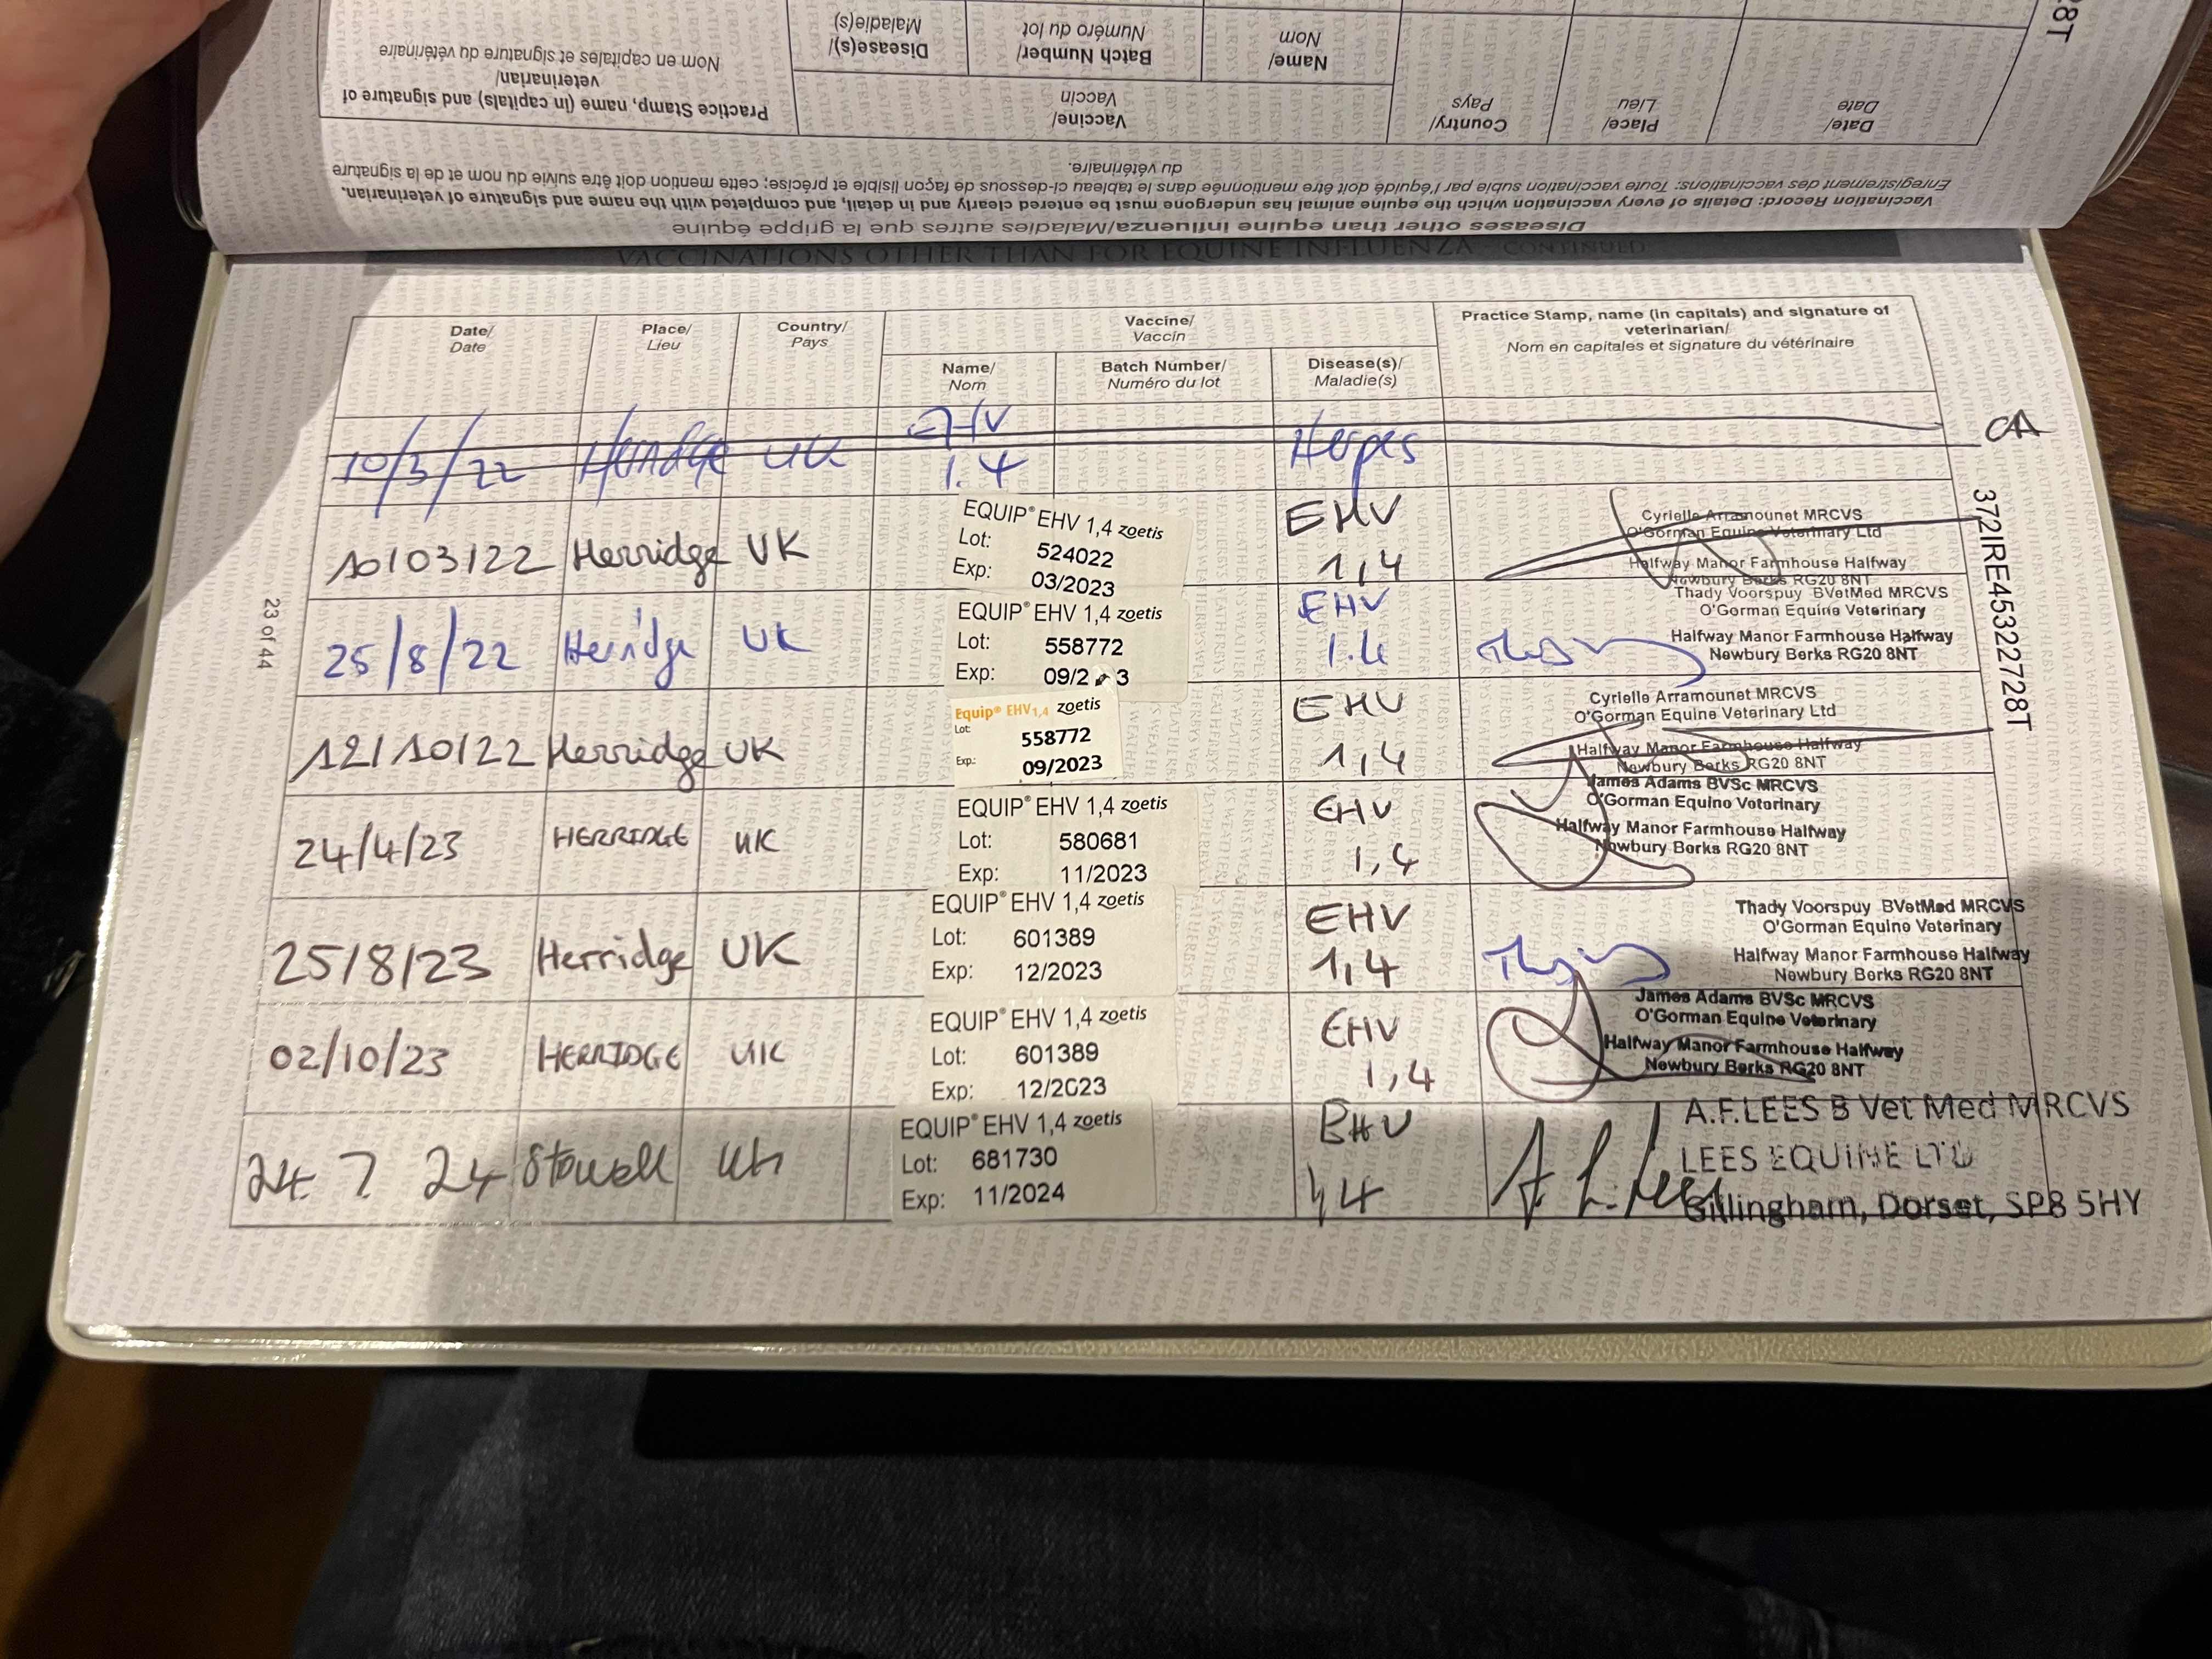 Diseases other than equine influenza/Maladies autres que la grippe équine
Vaccination Record: Details of every vaccination which the equine animal has undergone must be entered clearly and in detail, and completed with the name and signature of veterinarian.
Enregistrement des vaccinations: Toute vaccination subie par l'équidé doit être mentionnée dans le tableau ci-dessous de façon lisible et précise; cette mention doit être suivie du nom et de la signature
du vétérinaire.
Date/ Date
Place/ Lieu
Country/ Pays
Vaccine/ Vaccin
Name/ Nom
Batch Number/ Numéro du lot
Disease(s)/ Maladie(s)
Practice Stamp, name (in capitals) and signature of
veterinarian/
Nom en capitales et signature du vétérinaire
28T
VACCINATIONS OTHER THAN FOR EQUINE INFLUENZA - CONTINUED
Date/ Date
Place/ Lieu
Country/ Pays
Vaccine/ Vaccin
Name/ Nom
Batch Number/ Numéro du lot
Disease(s)/ Maladie(s)
Practice Stamp, name (in capitals) and signature of
veterinarian/
Nom en capitales et signature du vétérinaire
10/3/22 Herridge UK EHV 1.4 Herpes CA
10/03/22 Herridge UK
EQUIP® EHV 1,4 zoetis
Lot: 524022
Exp: 03/2023
EHV 1,4
Cyrielle Arramounet MRCVS
O'Gorman Equine Veterinary Ltd
Halfway Manor Farmhouse Halfway
Newbury Berks RG20 8NT
25/8/22 Herridge UK
EQUIP® EHV 1,4 zoetis
Lot: 558772
Exp: 09/2 3
EHV 1.4
Thady Voorspuy BVetMed MRCVS
O'Gorman Equine Veterinary
Halfway Manor Farmhouse Halfway
Newbury Berks RG20 8NT
12/10/22 Herridge UK
Equip® EHV1,4 zoetis
Lot: 558772
Exp.: 09/2023
EHV 1,4
Cyrielle Arramounet MRCVS
O'Gorman Equine Veterinary Ltd
Halfway Manor Farmhouse Halfway
Newbury Berks RG20 8NT
24/4/23 HERRIDGE UK
EQUIP® EHV 1,4 zoetis
Lot: 580681
Exp: 11/2023
EHV 1,4
James Adams BVSc MRCVS
O'Gorman Equine Veterinary
Halfway Manor Farmhouse Halfway
Newbury Berks RG20 8NT
25/8/23 Herridge UK
EQUIP® EHV 1,4 zoetis
Lot: 601389
Exp: 12/2023
EHV 1,4
Thady Voorspuy BVetMed MRCVS
O'Gorman Equine Veterinary
Halfway Manor Farmhouse Halfway
Newbury Berks RG20 8NT
02/10/23 HERRIDGE UK
EQUIP® EHV 1,4 zoetis
Lot: 601389
Exp: 12/2023
EHV 1,4
James Adams BVSc MRCVS
O'Gorman Equine Veterinary
Halfway Manor Farmhouse Halfway
Newbury Berks RG20 8NT
24 7 24 Stowell UK
EQUIP® EHV 1,4 zoetis
Lot: 681730
Exp: 11/2024
EHV 1,4
A.F.LEES B Vet Med MRCVS
LEES EQUINE LTD
Gillingham, Dorset, SP8 5HY
A F. Lees
23 of 44
372IRE45322728T